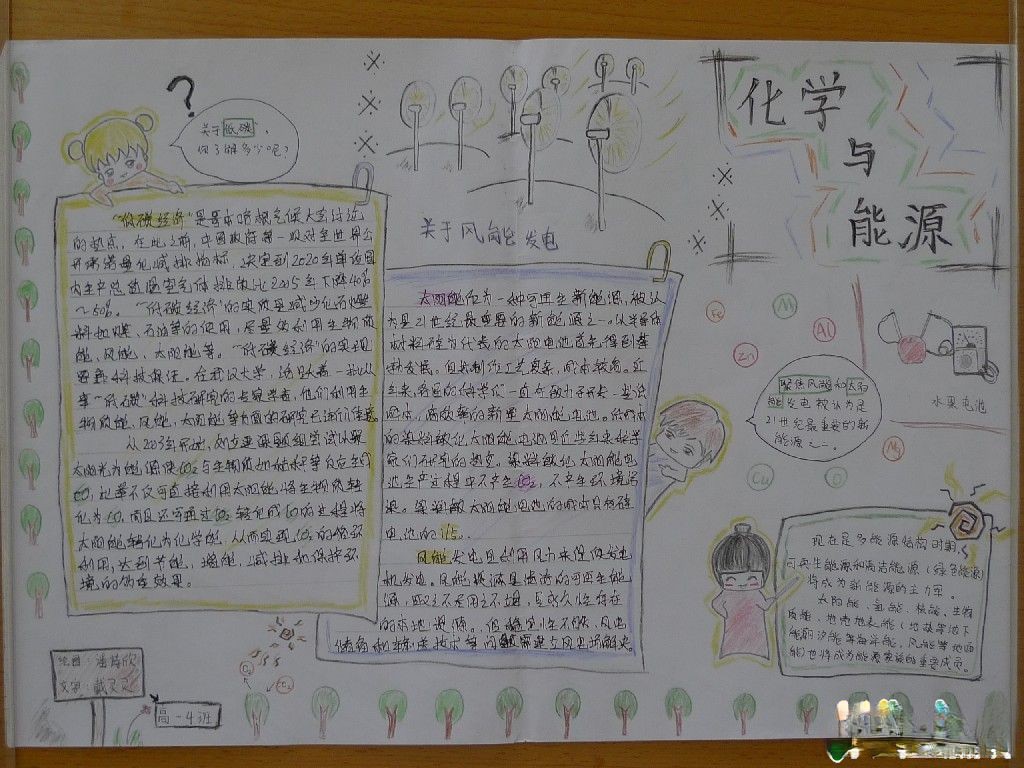 化学
与
能源
?
关于低碳，
你了解多少呢？
“低碳经济”是哥本哈根气候大会讨论
的热点，在此之前，中国政府第一次对全世界公
开承诺量化减排指标，决定到2020年单位国
内生产总值温室气体排放比2005年下降40%
~50%。“低碳经济”的实质是减少化石燃
料如煤、石油等的使用，尽量使利用生物质
能、风能、太阳能等。“低碳经济”的实现
需要科技保证。在武汉大学，活跃着一批从
事“低碳”科技研究的专家学者，他们利用生
物质能、风能、太阳能等方面的研究已
太阳光为能源使CO₂与生物质如秸秆等反应生成
CO，此举不仅可直接利用太阳能将生物质转
化为CO，而且还可通过CO₂转化成CO的过程将
太阳能转化为化学能，从而实现CO₂的循环
利用，达到节能、增能、减排和保护环
境的多重效果。
关于风能发电
太阳能作为一种可再生新能源，被认
为是21世纪最重要的新能源之一。以半导体
材料硅为代表的太阳电池首先得到蓬
勃发展。但其制作工艺复杂，成本较高。近
年来，各国的科学家们一直在致力于研
低成本、高效率的新型太阳能电池。低成本
的染料敏化太阳能电池是近些年来科学
家们研究的热点。染料敏化太阳能电
池生产过程中不产生CO₂，不产生环境污
染。染料敏太阳能电池的成本只有硅
电池的1/5。
风能发电是利用风力来推动发电
机发电。风能
源，取之不尽用之不竭，
储备和输送技术等问题需建立风电场解决。
Fe
Al
Zn
Cu
水果电池
聚焦风能和太阳
能发电被认为是
21世纪最重要的新
能源之一。
现在是多能源结构时期，
可再生能源和高洁能源（绿色能源）
将成为新能源的主力军。
太阳能、氢能、核能、生物
质能、地壳地表能（地热等地下
能）潮汐能等海洋能，风能等地面
能）也将成为能源家族的重要成员。
绘图：潘
文字：戴
高一4班